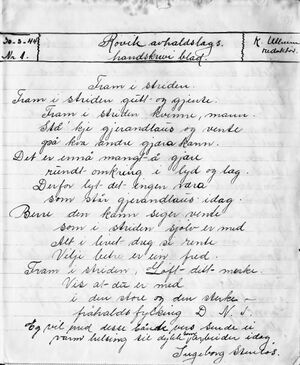 30-3-44 Rovik avhaldslags K. Ulheim
Nr 1. handskrevi blad. redaktør.
Fram i striden
Fram i striden gutt og gjente.
Fram i striden kvinne, mann.
Stå 'kje gjerandlaus og vente
på kva andre gjera kann.
Det er ennå mangt å gjere
rundt omkring i lyd og lag.
Derfor lyt det ingen vera
som står gjerandlaus i dag.
Berre den kann siger vente
som i striden sjølv er med
Alt i livet dug si rente
Vilje betre er enn fred.
Fram i striden, Løft ditt merke.
Vis at du er med
i den store og den sterke
fråhaldsfylking D. N. T.
Eg vil med desse vers sende ei
varm helsing til dykk som arbeider idag.
Ingeborg